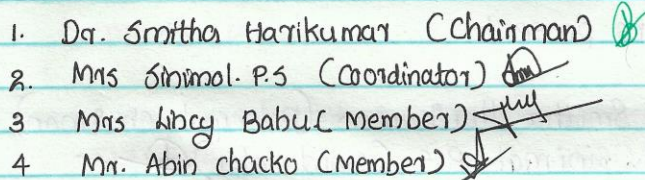 1. Dr. Smitha Harikumar (Chairman)
2. Mrs Sinimol. P.S (Coordinator)
3 Mrs Libcy Babu ( member)
4 Mr. Abin chacko (Member)